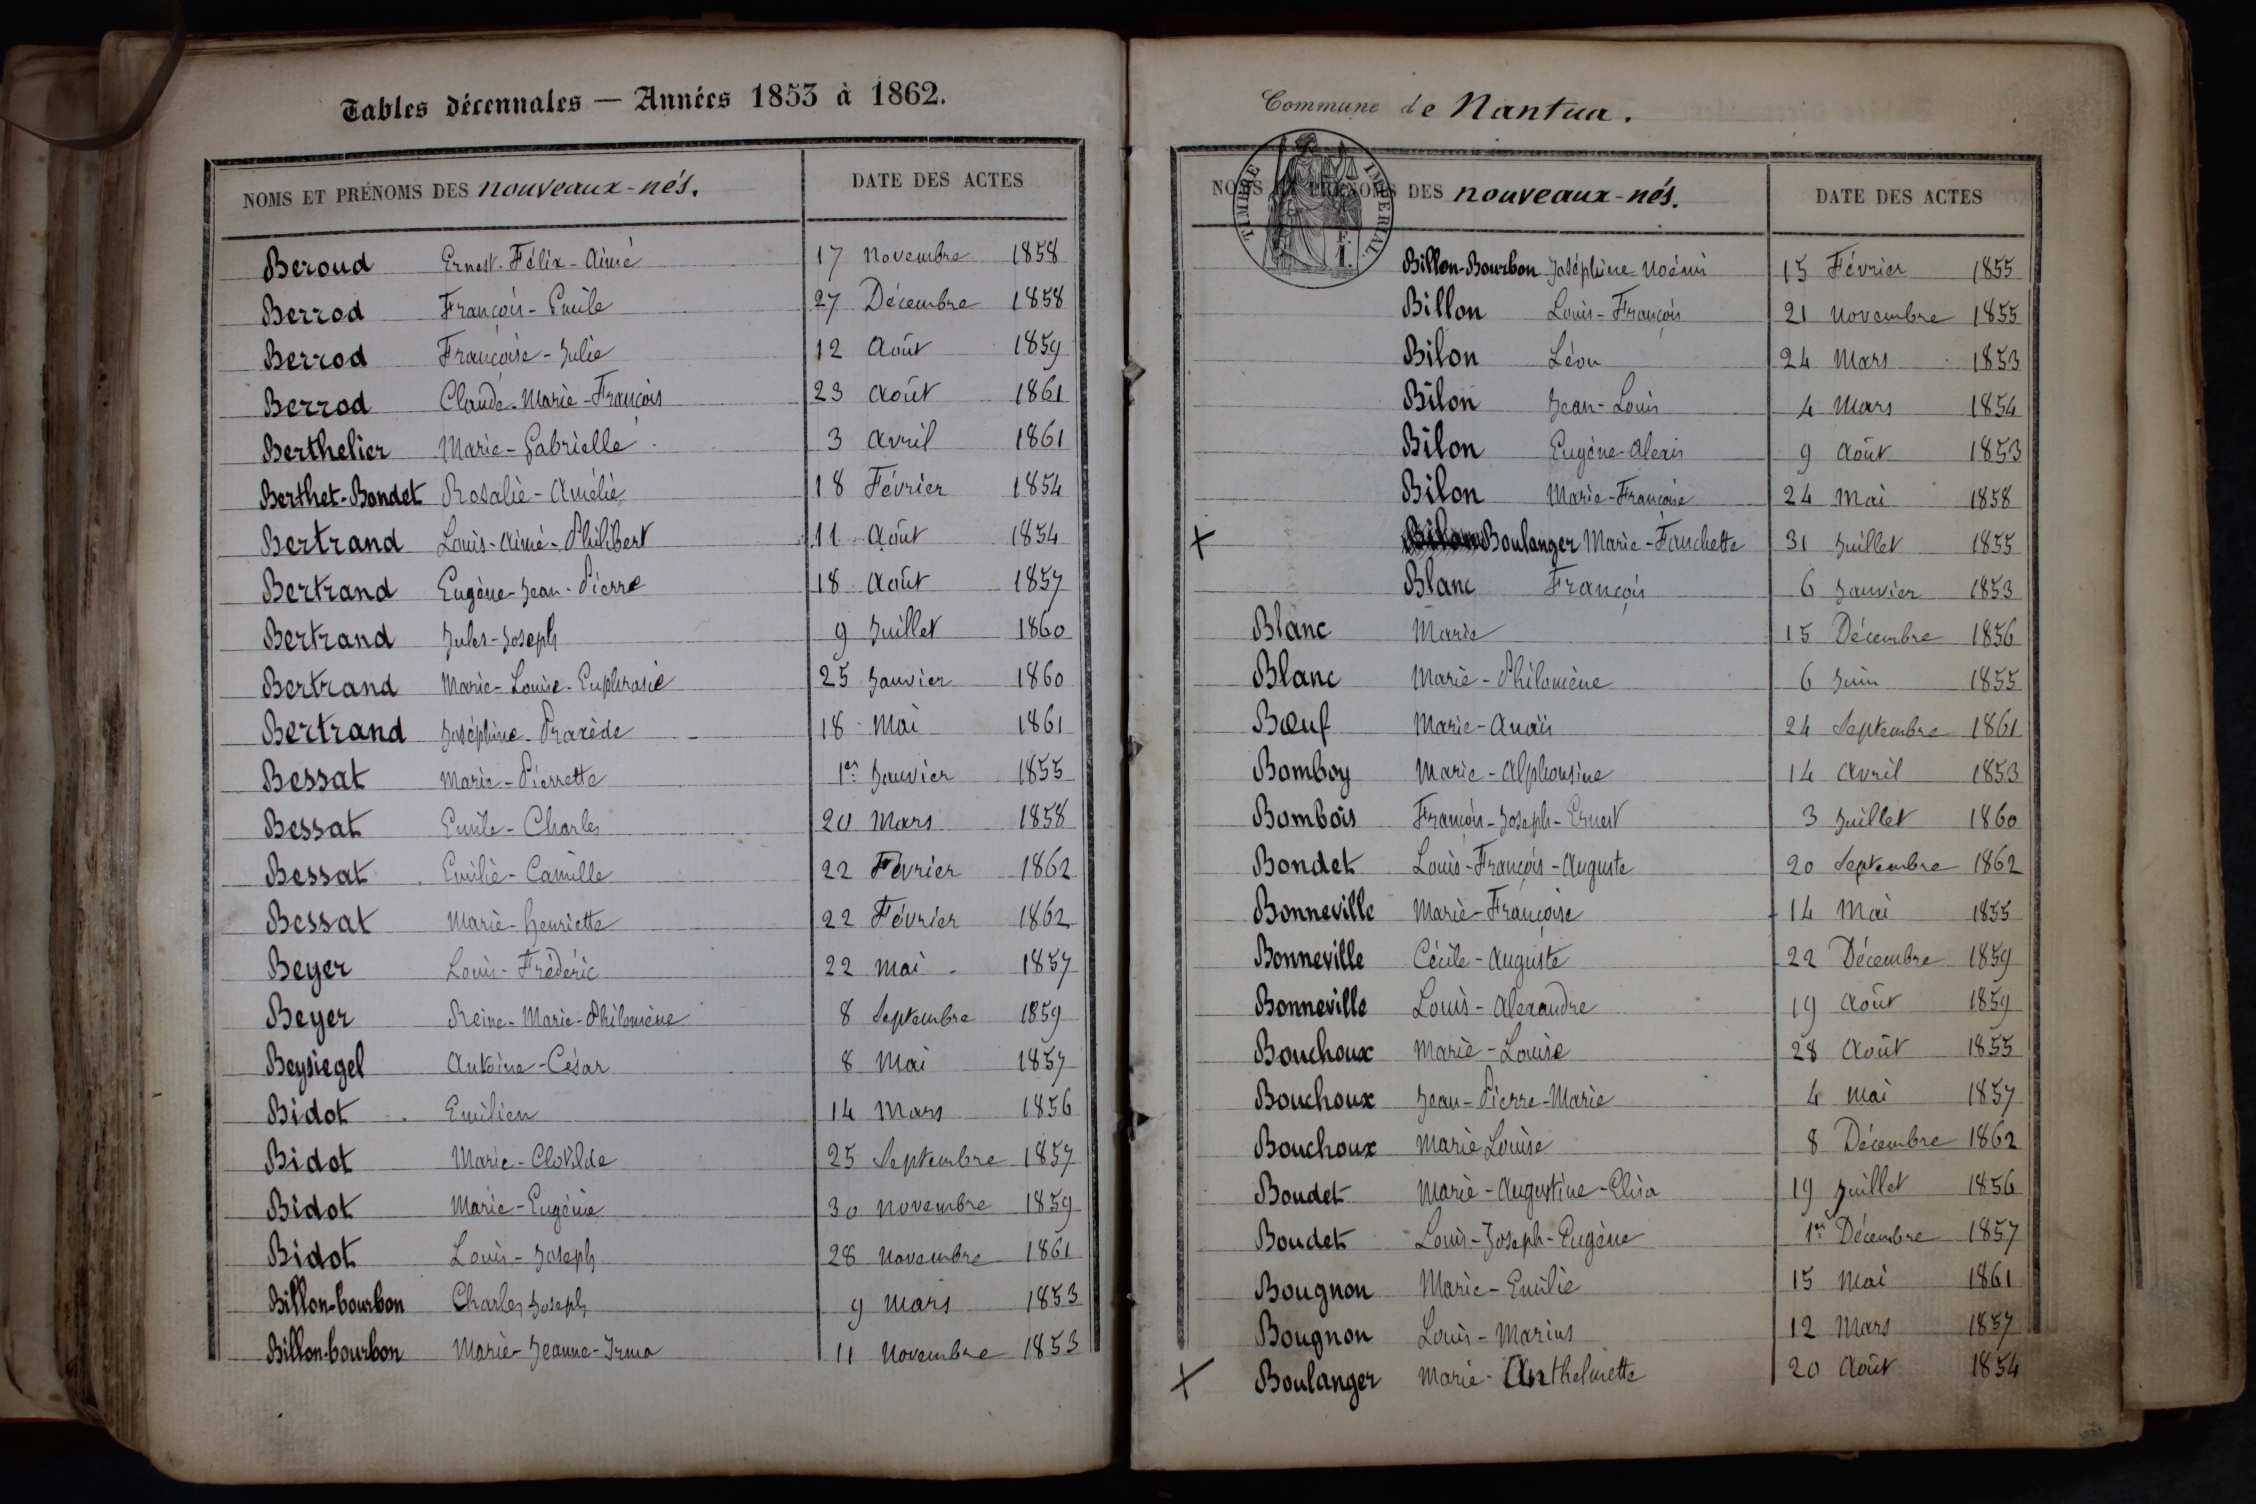 Tables décennales — Années 1853 à 1862.
NOMS ET PRÉNOMS DES nouveaux-nés. DATE DES ACTES
Beroud Ernest-Félix-Aimé 17 Novembre 1858
Berrod François-Emile 27 Décembre 1858
Berrod Françoise-Julie 12 Août 1859
Berrod Claude-Marie-François 23 Août 1861
Berthelier Marie-Gabrielle 3 Avril 1861
Berthet-Bondet Rosalie-Amélie 18 Février 1854
Bertrand Louis-Aimé-Philibert 11 Août 1854
Bertrand Eugène-Jean-Pierre 18 Août 1857
Bertrand Jules-Joseph 9 Juillet 1860
Bertrand Marie-Louise-Euphrasie 25 Janvier 1860
Bertrand Joséphine-Praxède 18 Mai 1861
Bessat Marie-Pierrette 1er Janvier 1855
Bessat Emile-Charles 20 Mars 1858
Bessat Emilie-Camille 22 Février 1862
Bessat Marie-henriette 22 Février 1862
Beyer Louis-Frédéric 22 Mai 1857
Beyer Reine-Marie-Philomène 8 Septembre 1859
Beysiegel Antoine-César 8 Mai 1857
Bidot Emilien 14 Mars 1856
Bidot Marie-Clotilde 25 Septembre 1857
Bidot Marie-Eugénie 30 Novembre 1859
Bidot Louis-Joseph 28 Novembre 1861
Billon-bourbon Charles Joseph 9 Mars 1853
Billon-bourbon Marie-Jeanne-Irma 11 Novembre 1853
Commune de Nantua.
TIMBRE IMPERIAL
1 F.
NOMS ET PRÉNOMS DES nouveaux-nés. DATE DES ACTES
Billon-Bourbon Joséphine Noémi 15 Février 1855
Billon Louis-François 21 Novembre 1855
Bilon Léon 24 Mars 1853
Bilon Jean-Louis 4 Mars 1854
Bilon Eugène-Alexis 9 Août 1853
Bilon Marie-Françoise 24 Mai 1858
X Bilon Boulanger Marie-Fanchette 31 Juillet 1855
Blanc François 6 Janvier 1853
Blanc Marie 15 Décembre 1856
Blanc Marie-Philomène 6 Juin 1855
Bœuf Marie-Anaïs 24 Septembre 1861
Bomboy Marie-Alphonsine 14 Avril 1853
Bombois François-Joseph-Ernest 3 Juillet 1860
Bondet Louis-François-Auguste 20 Septembre 1862
Bonneville Marie-Françoise 14 Mai 1855
Bonneville Cécile-Auguste 22 Décembre 1859
Bonneville Louis-Alexandre 19 Août 1859
Bouchoux Marie-Louise 28 Août 1855
Bouchoux Jean-Pierre-Marie 4 Mai 1857
Bouchoux Marie Louise 8 Décembre 1862
Boudet Marie-Augustine-Elisa 19 Juillet 1856
Boudet Louis-Joseph-Eugène 1er Décembre 1857
Bougnon Marie-Emilie 15 Mai 1861
Bougnon Louis-Marius 12 Mars 1857
X Boulanger Marie-Anthelmette 20 Août 1854